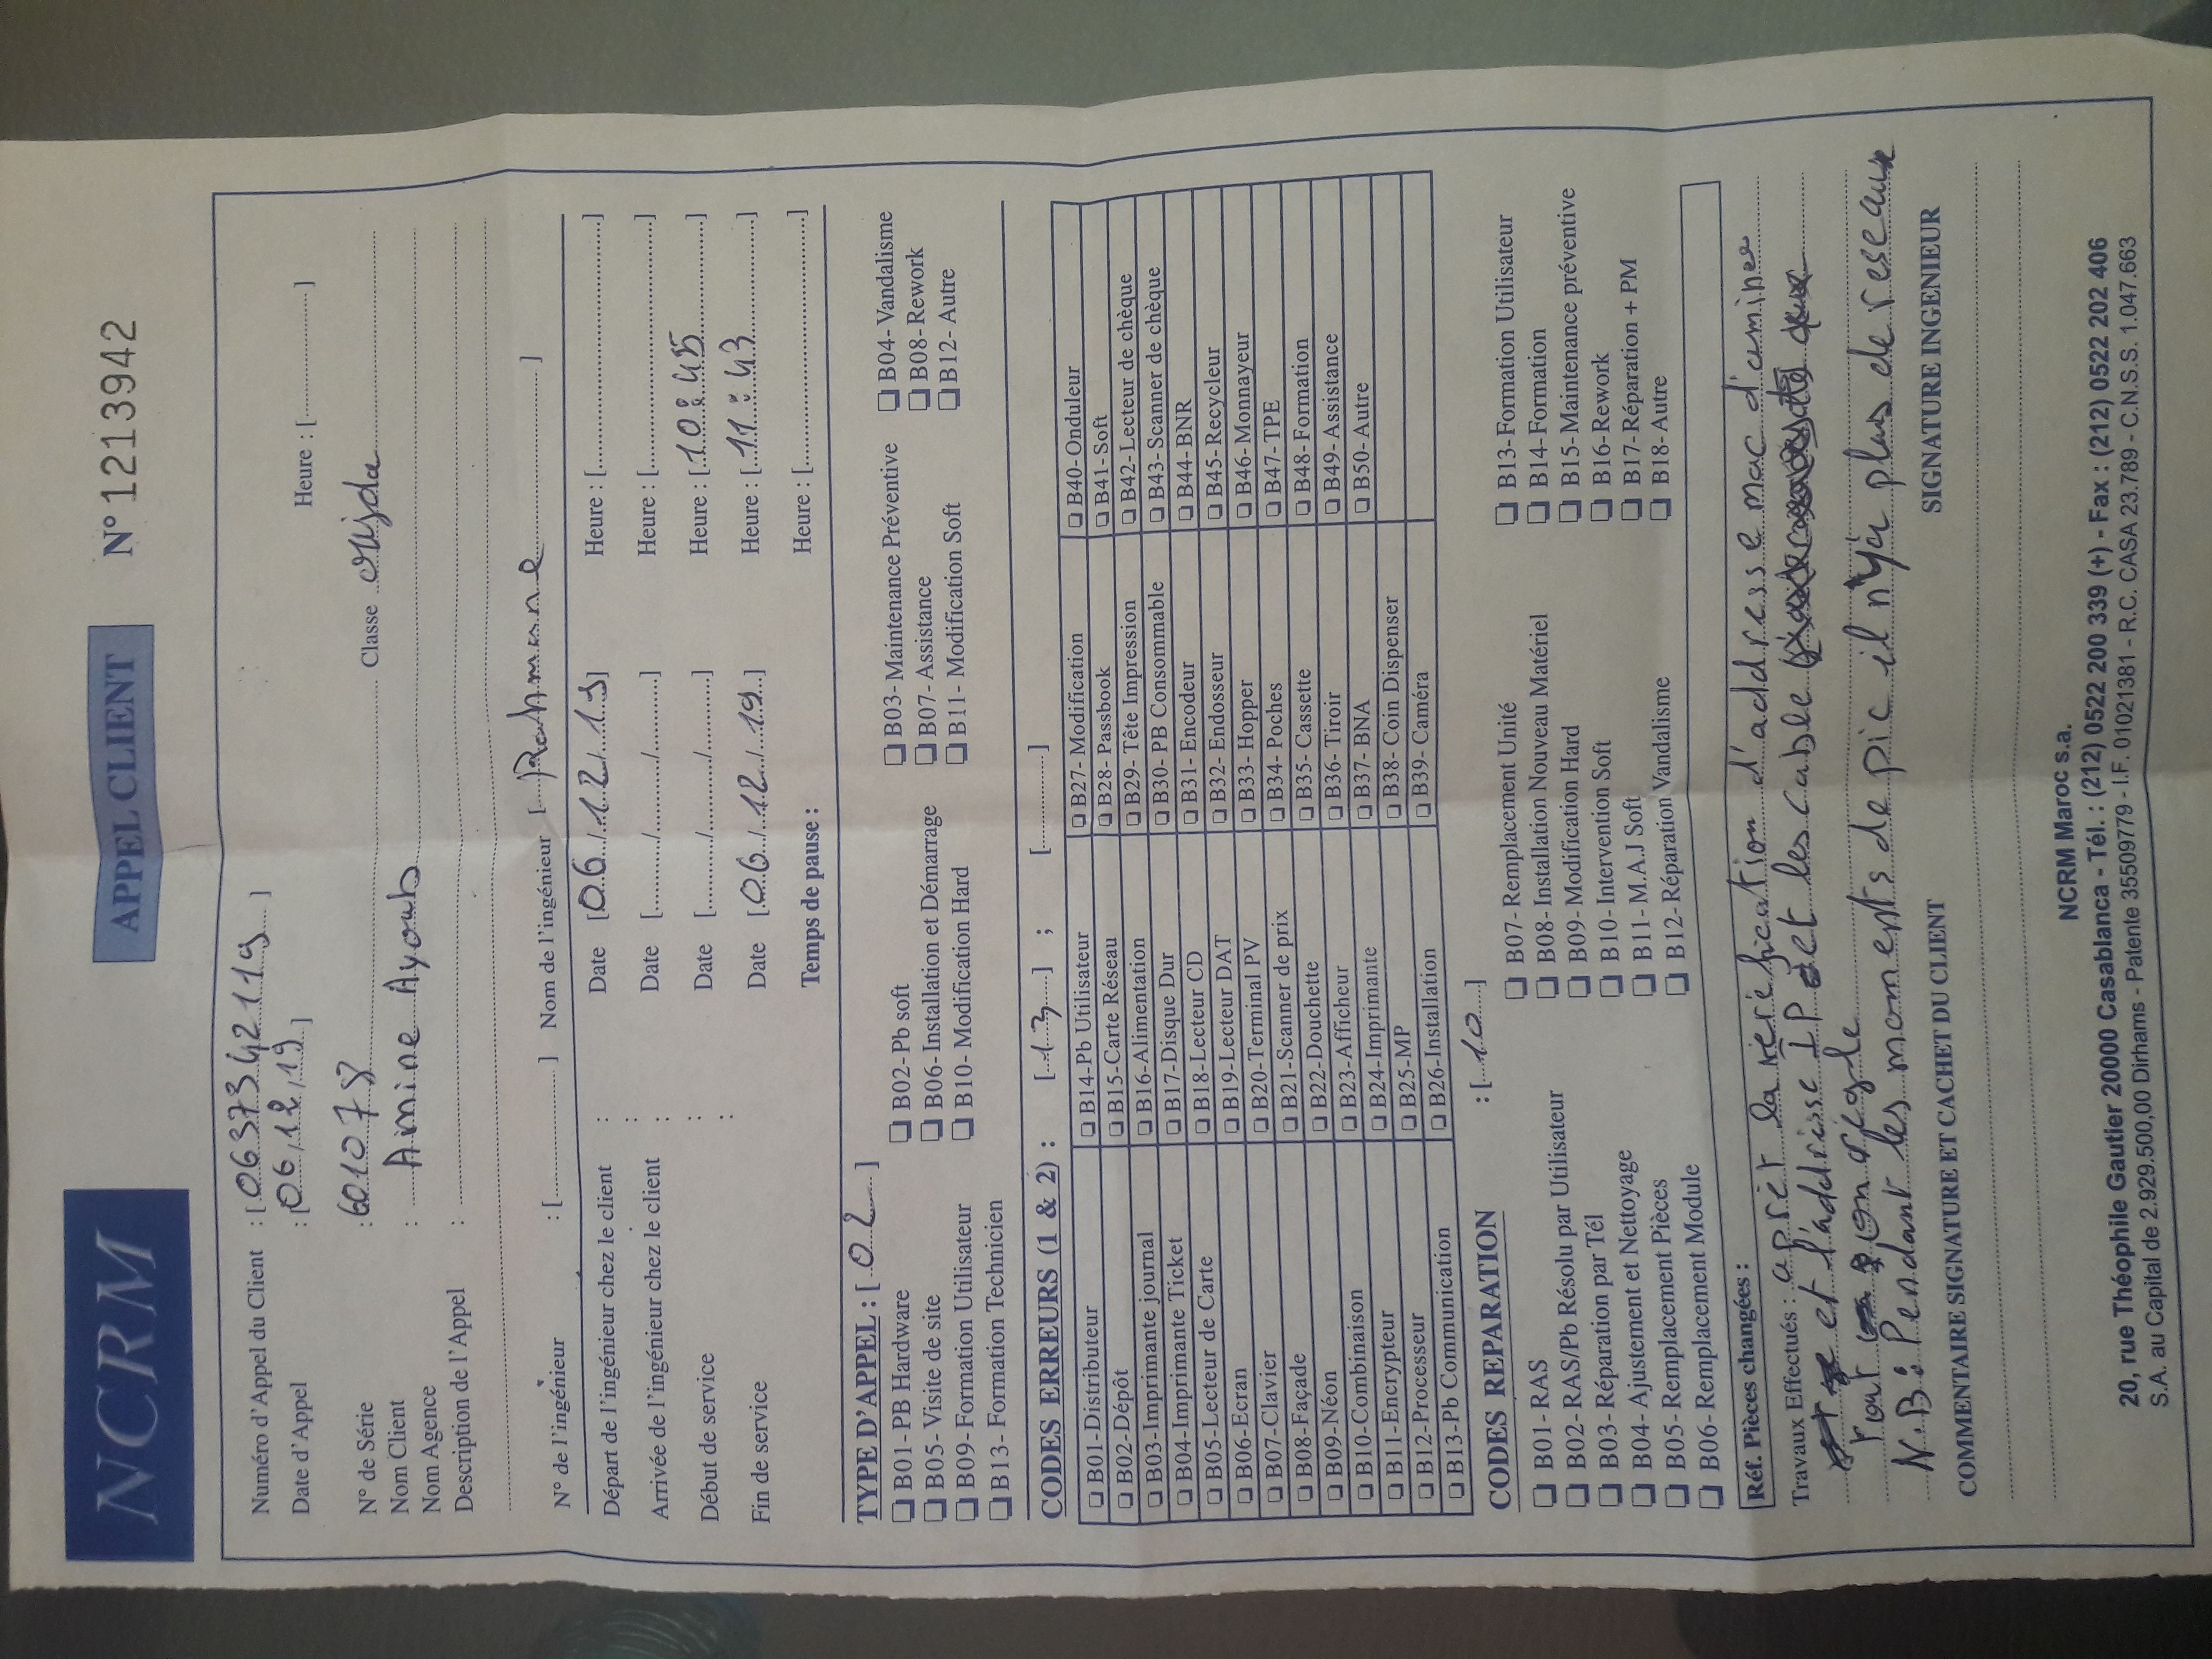 NCRM
APPEL CLIENT
N° 1213942
Numéro d'Appel du Client : [ 0637342119 ]
Date d'Appel : [ 06/12/19 ] Heure : [ ]
N° de Série : 601078 Classe oujda
Nom Client
Nom Agence : Amine Ayoub
Description de l'Appel :
N° de l'ingénieur : [ ] Nom de l'ingénieur [ Rahmane ]
Départ de l'ingénieur chez le client : Date [ 06 / 12 / 19 ] Heure : [ ]
Arrivée de l'ingénieur chez le client : Date [ / / ] Heure : [ ]
Début de service : Date [ / / ] Heure : [ 10:45 ]
Fin de service : Date [ 06 / 12 / 19 ] Heure : [ 11:43 ]
Temps de pause : Heure : [ ]
TYPE D'APPEL : [ 02 ]
B01-PB Hardware B02-Pb soft B03-Maintenance Préventive B04-Vandalisme
B05-Visite de site B06-Installation et Démarrage B07-Assistance B08-Rework
B09-Formation Utilisateur B10-Modification Hard B11-Modification Soft B12-Autre
B13-Formation Technicien
CODES ERREURS (1 & 2) : [ 13 ] ; [ ]
B01-Distributeur B14-Pb Utilisateur B27-Modification B40-Onduleur
B02-Dépôt B15-Carte Réseau B28-Passbook B41-Soft
B03-Imprimante journal B16-Alimentation B29-Tête Impression B42-Lecteur de chèque
B04-Imprimante Ticket B17-Disque Dur B30-PB Consommable B43-Scanner de chèque
B05-Lecteur de Carte B18-Lecteur CD B31-Encodeur B44-BNR
B06-Ecran B19-Lecteur DAT B32-Endosseur B45-Recycleur
B07-Clavier B20-Terminal PV B33-Hopper B46-Monnayeur
B08-Façade B21-Scanner de prix B34-Poches B47-TPE
B09-Néon B22-Douchette B35-Cassette B48-Formation
B10-Combinaison B23-Afficheur B36-Tiroir B49-Assistance
B11-Encrypteur B24-Imprimante B37-BNA B50-Autre
B12-Processeur B25-MP B38-Coin Dispenser
B13-Pb Communication B26-Installation B39-Caméra
CODES REPARATION : [ 10 ]
B01-RAS B07-Remplacement Unité B13-Formation Utilisateur
B02-RAS/Pb Résolu par Utilisateur B08-Installation Nouveau Matériel B14-Formation
B03-Réparation par Tél B09-Modification Hard B15-Maintenance préventive
B04-Ajustement et Nettoyage B10-Intervention Soft B16-Rework
B05-Remplacement Pièces B11-M.A.J Soft B17-Réparation + PM
B06-Remplacement Module B12-Réparation Vandalisme B18-Autre
Réf. Pièces changées :
Travaux Effectués : aprét la veréfication d'addresse mac d'aminee
et l'addrisse IP et les cable
tout on régle
N.B: Pendant les moments de pic il n'ya plus de reseaux
COMMENTAIRE SIGNATURE ET CACHET DU CLIENT SIGNATURE INGENIEUR
NCRM Maroc s.a.
20, rue Théophile Gautier 20000 Casablanca - Tél. : (212) 0522 200 339 (+) - Fax : (212) 0522 202 406
S.A. au Capital de 2.929.500,00 Dirhams - Patente 35509779 - I.F. 01021381 - R.C. CASA 23.789 - C.N.S.S. 1.047.663